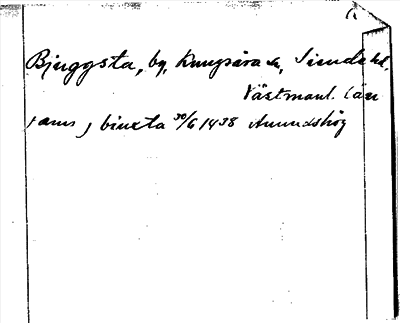 Bjuggsta, by, Kungsåra sn, Siende hd,
Västmanl. län
, biuxta 30/6 1438 Anundshög